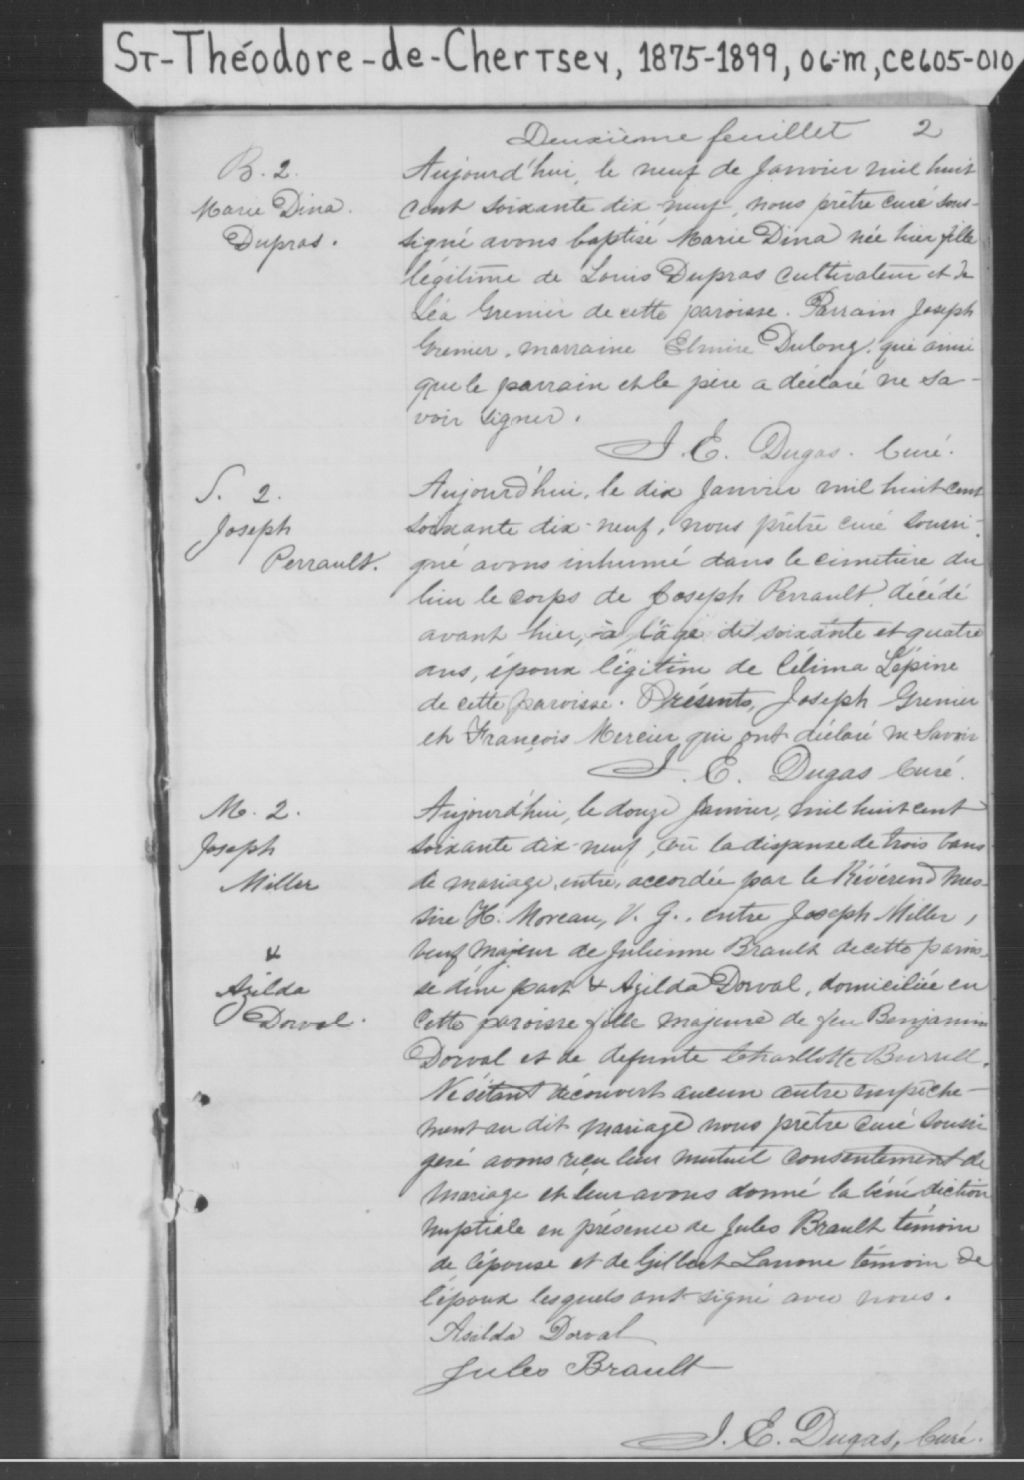 St-Théodore-de-Chertsey, 1875-1899, 06-m, CE605-010
Deuxième feuillet 2
B. 2.
Marie Dina
Dupras.
Aujourd'hui, le neuf de Janvier mil huit
cent soixante dix neuf, nous prêtre curé sous-
signé avons baptisé Marie Dina née hier fille
légitime de Louis Dupras cultivateur et de
Léa Grenier de cette paroisse. Parrain Joseph
Grenier, marraine Elmire Dulong, qui ainsi
que le parrain et le père a déclaré ne sa-
voir signer.
J. E. Dugas. Curé.
S. 2.
Joseph
Perrault.
Aujourd'hui, le dix Janvier mil huit cent
soixante dix-neuf, nous prêtre curé soussi-
gné avons inhumé dans le cimetière du
lieu le corps de Joseph Perrault décédé
avant hier, à l'âge de soixante et quatre
ans, époux légitime de Célima Lépine
de cette paroisse. Présents, Joseph Grenier
et François Mercier qui ont déclaré ne savoir
J. E. Dugas Curé.
M. 2.
Joseph
Miller
&
Azilda
Dorval.
Aujourd'hui, le douze Janvier, mil huit cent
soixante dix-neuf, vu la dispense de trois bans
de mariage, entre, accordée par le Révérend Mes-
sire H. Moreau, V. G., entre Joseph Miller,
veuf majeur de Julienne Brault de cette parois-
se d'une part & Azilda Dorval, domiciliée en
cette paroisse fille majeure de feu Benjamin
Dorval et de defunte Charllotte Burrell.
Ne s'étant découvert aucun autre empêche-
ment au dit mariage nous prêtre curé soussi
gné avons reçu leur mutuel consentement de
mariage et leur avons donné la bénédiction
nuptiale en présence de Jules Brault témoin
de l'épouse et de Gilbert Lanoue témoin de
l'époux lesquels ont signé avec nous.
Asilda Dorval
Jules Brault
J. E. Dugas, Curé.